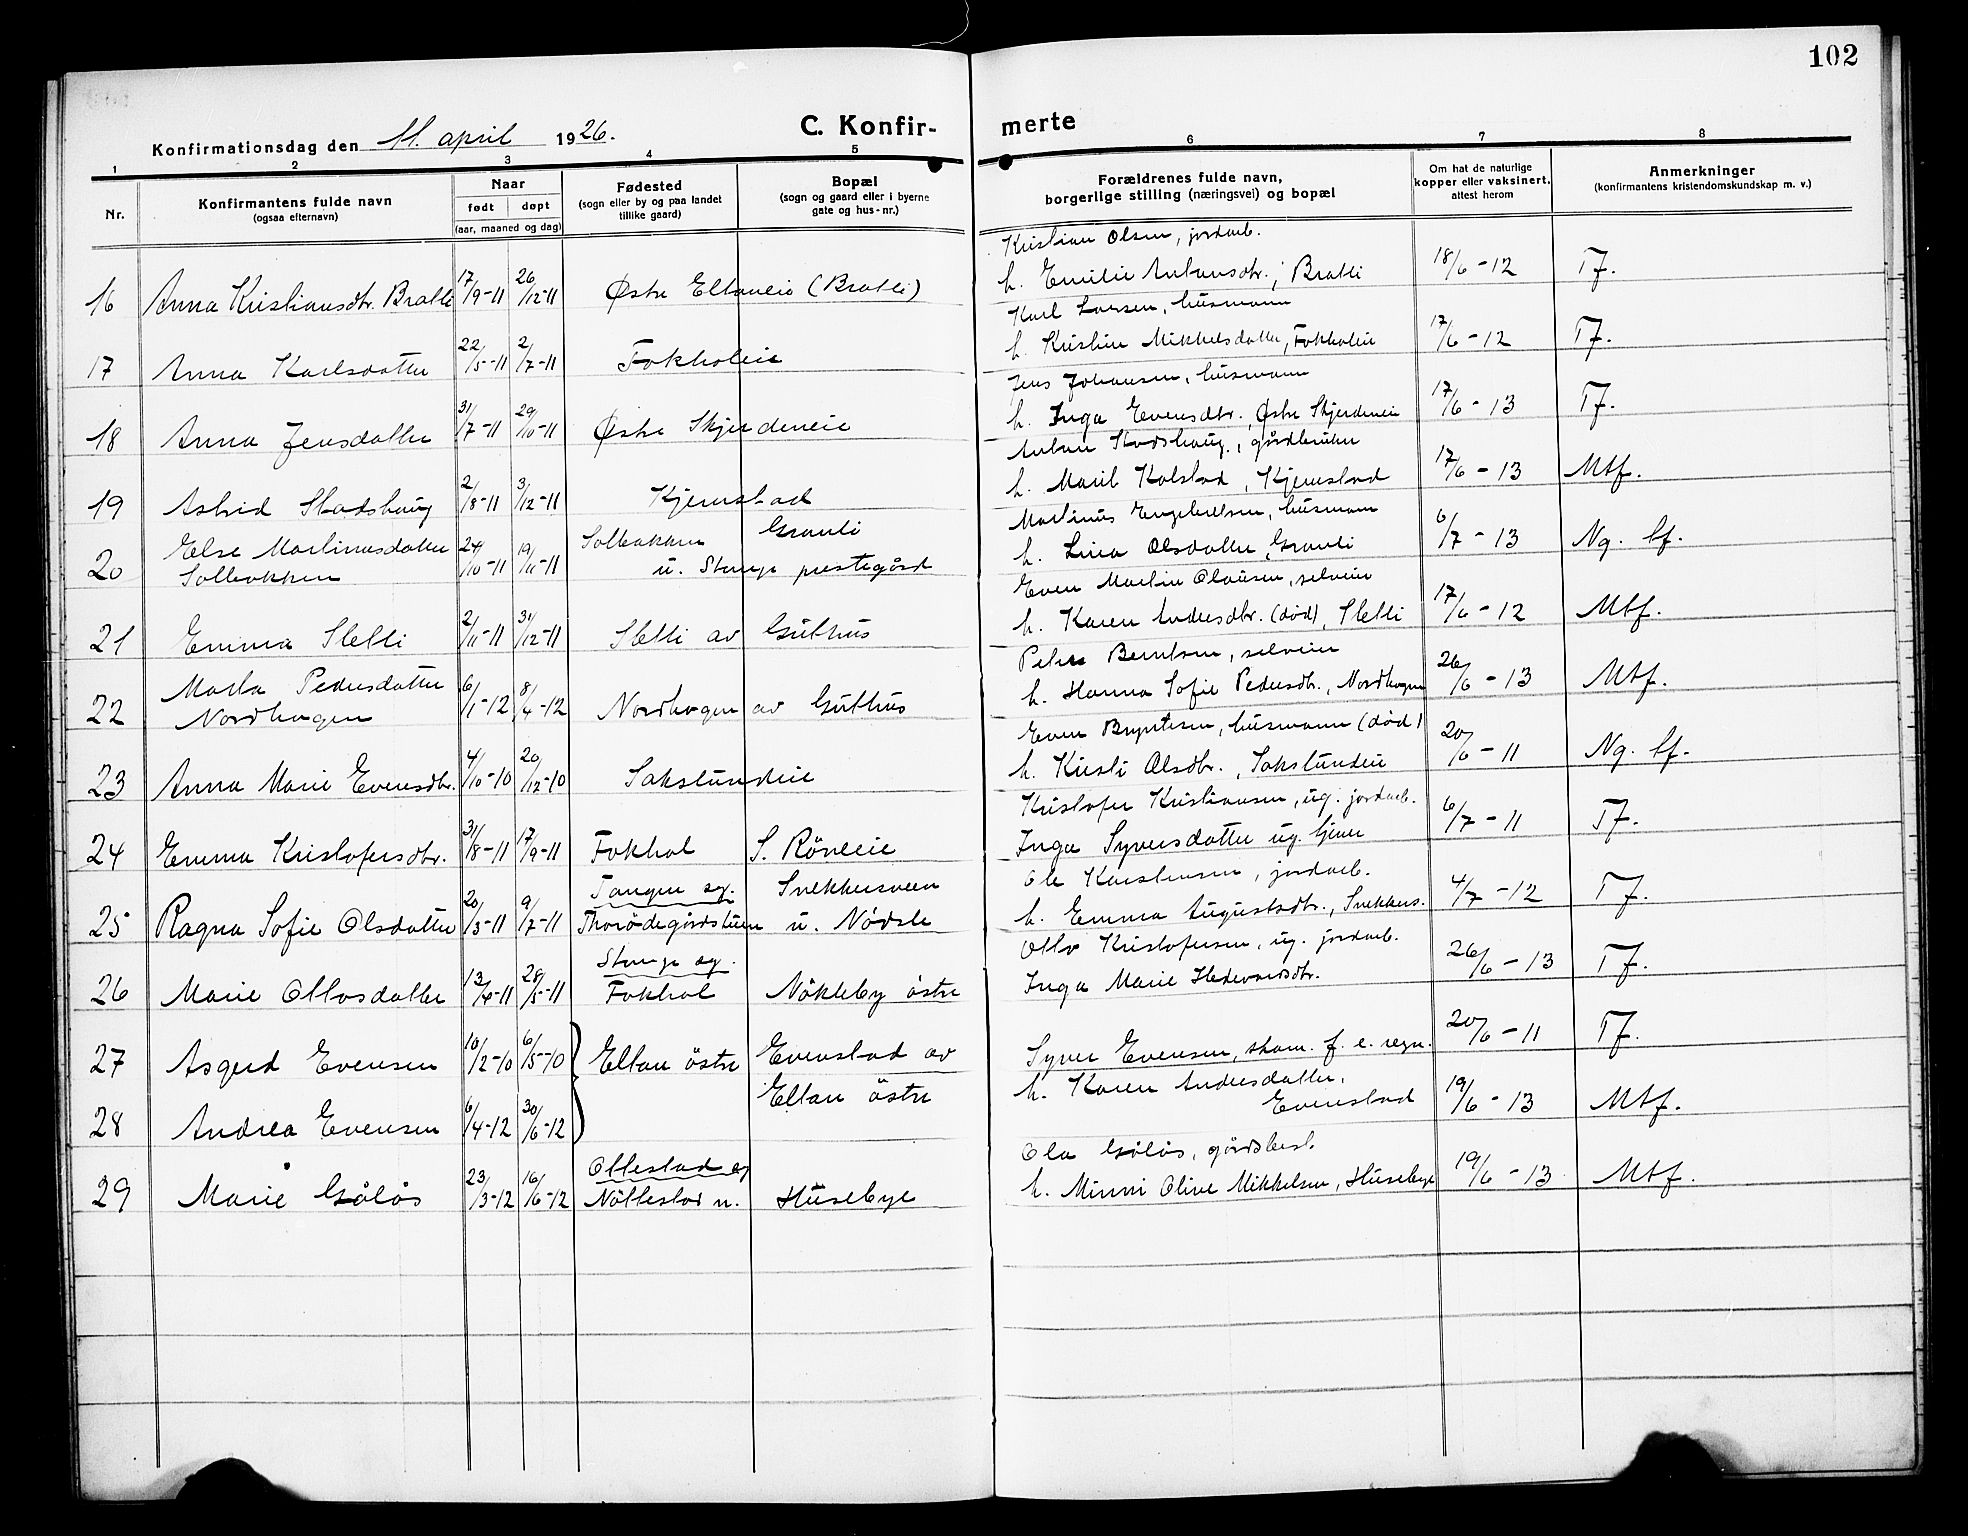 102
Konfirmationsdag den 11. april 1926.
C. Konfir-
merte
1 2 3 4 5 6 7 8
Nr.
Konfirmantens fulde navn
(ogsaa efternavn)
Naar
født døpt
(aar, maaned og dag)
Fødested
(sogn eller by og paa landet
tillike gaard)
Bopæl
(sogn og gaard eller i byerne
gate og hus-nr.)
Forældrenes fulde navn,
borgerlige stilling (næringsvei) og bopæl
Om hat de naturlige
kopper eller vaksinert,
attest herom
Anmerkninger
(konfirmantens kristendomskundskap m. v.)
Kristian Olsen, jordarb.
16 Anna Kristiansdtr. Bratli 17/9-11 26/12-11 Østre Ellaneie (Bratli) h. Emilie Antonsdtr., Bratli 18/6-12 Tf.
Karl Larsen, husmann
17 Anna Karlsdatter 22/5-11 2/7-11 Fokholeie h. Kristine Mikkelsdatter, Fokholeie 17/6-12 Tf.
Jens Johansen, husmann
18 Anna Jensdatter 31/7-11 29/10-11 Østre Skjerdeneie h. Inga Evensdtr., Østre Skjerdeneie 17/6-13 Tf.
Anton Stadshaug, gårdbruker
19 Astrid Stadshaug 2/8-11 3/12-11 Kjemstad h. Marit Kolstad, Kjemstad 17/6-13 Mtf.
Martinus Engebretsen, husmann
20 Else Martinusdatter 24/10-11 19/11-11 Solbakken Granli h. Lina Olsdatter, Granli 6/7-13 Ng. tf.
Solbakken u. Stange prestegård
Even Martin Olausen, selveier
21 Emma Sletli 2/11-11 31/12-11 Sletli av Guthus h. Karen Andersdtr. (død), Sletli 17/6-12 Mtf.
Peter Berntsen, selveier
22 Marta Pedersdatter 6/1-12 8/4-12 Nordhagen av Guthus h. Hanna Sofie Pedersdtr., Nordhagen 26/6-13 Mtf.
Nordhagen
Even Bryntesen, husmann (død)
23 Anna Marie Evensdtr. 4/10-10 20/12-10 Sakslundeie h. Kirsti Olsdtr., Sakslundeie 20/6-11 Ng. tf.
Kristofer Kristiansen, ug. jordarb.
24 Emma Kristofersdtr. 31/8-11 17/9-11 Fokhol S. Röneeie Inga Syversdatter ug. tjener 6/7-11 Tf.
Tangen sg. Snekkersveen Ole Karstensen, jordarb.
25 Ragna Sofie Olsdatter 20/3-11 9/7-11 Thorödegårdstuen u. Nödsle h. Emma Augustsdtr., Snekkers. 4/7-12 Tf.
Stange sg. Otto Kristofersen, ug. jordarb.
26 Marie Ottosdatter 13/4-11 28/5-11 Fokhol Nökleby östre Inga Marie Hedevardsdtr. 26/6-13 Tf.
27 Asgerd Evensen 10/2-10 6/5-10 Ellan östre Evenstad av Syver Evensen, skom. f. e. regn. 20/6-11 Tf.
Ellan östre h. Karen Andersdatter,
28 Andrea Evensen 6/4-12 30/6-12 Evenstad 19/6-13 Mtf.
Ottestad sg Ola Gålås, gårdsbest.
29 Marie Gålås 23/3-12 16/6-12 Nöttestad n. Husebye h. Minni Olive Mikkelsen, Husebye 19/6-13 Mtf.